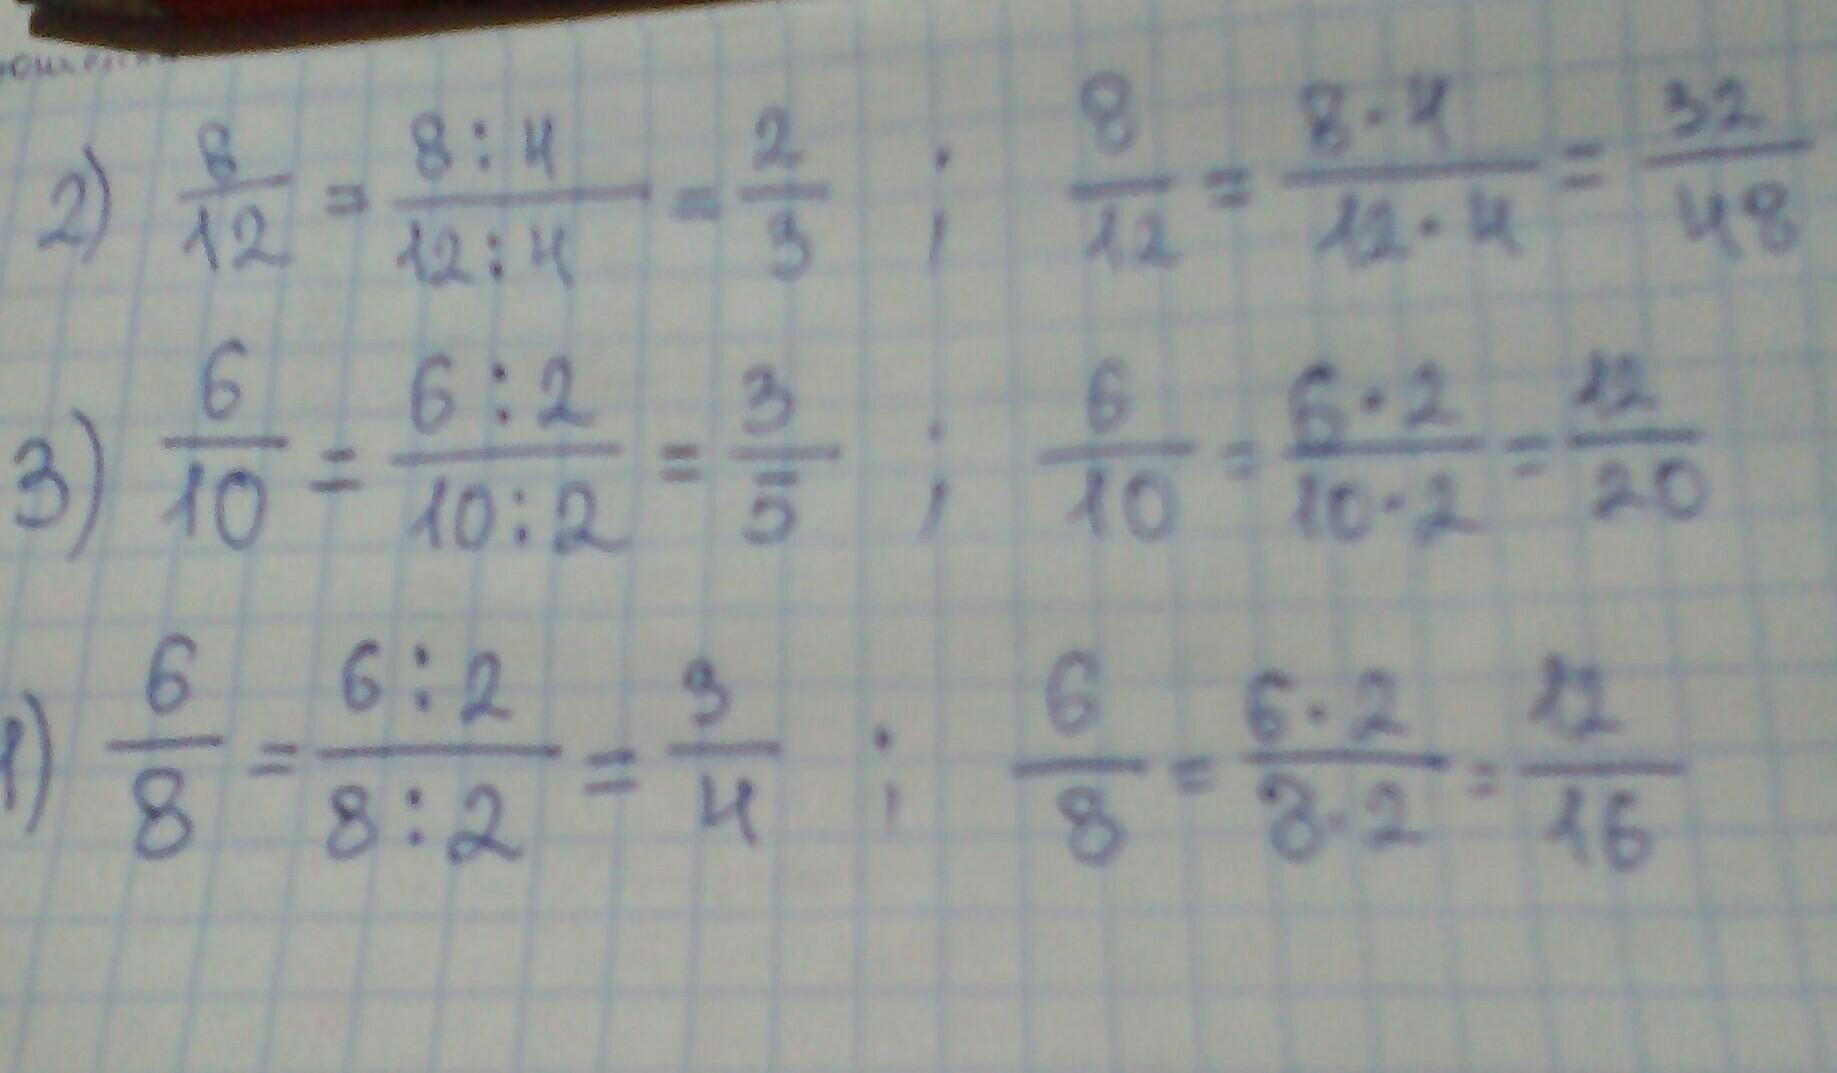 2) 8/12 = 8:4/12:4 = 2/3 ; 8/12 = 8·4/12·4 = 32/48
3) 6/10 = 6:2/10:2 = 3/5 ; 6/10 = 6·2/10·2 = 12/20
1) 6/8 = 6:2/8:2 = 3/4 ; 6/8 = 6·2/8·2 = 12/16